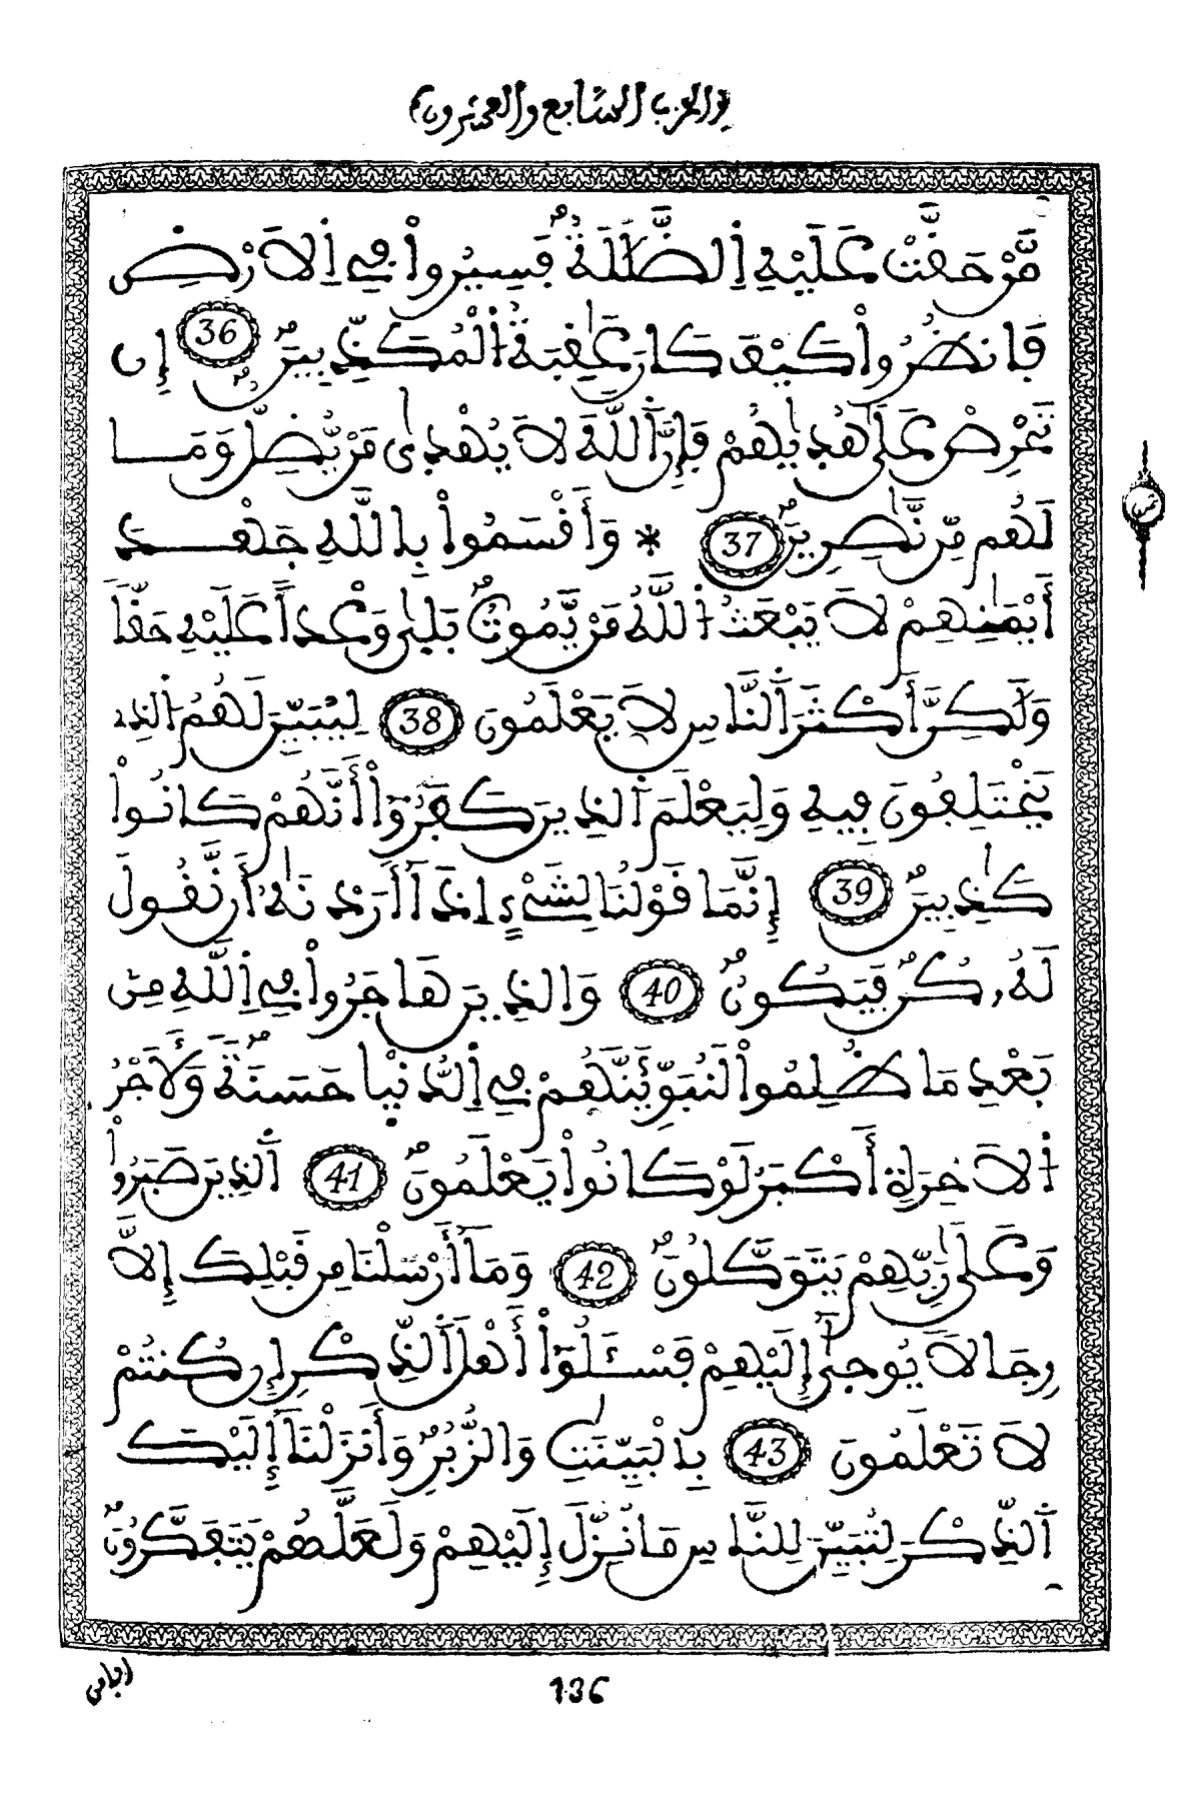 ﴿الحزب السابع والعشرون﴾
مَّنْ حَقَّتْ عَلَيْهِ اِ۬لضَّلَٰلَةُۖ فَسِيرُواْ فِے اِ۬لَارْضِ
فَانظُرُواْ كَيْفَ كَانَ عَٰقِبَةُ اُ۬لْمُكَذِّبِينَۖ 36 إِن
تَحْرِصْ عَلَىٰ هُد۪يٰهُمْ فَإِنَّ اَ۬للَّهَ لَا يُهْد۪ىٰ مَنْ يُّضِلُّۖ وَمَا
لَهُم مِّن نَّٰصِرِينَۖ 37 * وَأَقْسَمُواْ بِاللَّهِ جَهْدَ
أَيْمَٰنِهِمْ لَا يَبْعَثُ اُ۬للَّهُ مَنْ يَّمُوتُۖ بَل۪ىٰ وَعْداً عَلَيْهِ حَقّاً
وَلَٰكِنَّ أَكْثَرَ اَ۬لنَّاسِ لَا يَعْلَمُونَ 38 لِيُبَيِّنَ لَهُمُ اُ۬لذِے
يَخْتَلِفُونَ فِيهِ وَلِيَعْلَمَ اَ۬لذِينَ كَفَرُوٓاْ أَنَّهُمْ كَانُواْ
كَٰذِبِينَۖ 39 إِنَّمَا قَوْلُنَا لِشَےْءٍ اِذَآ أَرَدْنَٰهُ أَن نَّقُولَ
لَهُۥ كُن فَيَكُونُۖ 40 وَالذِينَ هَاجَرُواْ فِے اِ۬للَّهِ مِنۢ
بَعْدِ مَا ظُلِمُواْ لَنُبَوِّئَنَّهُمْ فِے اِ۬لدُّنْي۪ا حَسَنَةٗۖ وَلَأَجْرُ
اُ۬لَاخِرَةِ أَكْبَرُ لَوْ كَانُواْ يَعْلَمُونَۖ 41 اَ۬لذِينَ صَبَرُواْ
وَعَلَىٰ رَبِّهِمْ يَتَوَكَّلُونَۖ 42 وَمَآ أَرْسَلْنَا مِن قَبْلِكَ إِلَّا
رِجَالاً يُوح۪ىٰٓ إِلَيْهِمْ فَسْـَٔلُوٓاْ أَهْلَ اَ۬لذِّكْرِ إِن كُنتُمْ
لَا تَعْلَمُونَ 43 بِالْبَيِّنَٰتِ وَالزُّبُرِۖ وَأَنزَلْنَآ إِلَيْكَ
اَ۬لذِّكْرَ لِتُبَيِّنَ لِلنَّاسِ مَا نُزِّلَ إِلَيْهِمْ وَلَعَلَّهُمْ يَتَفَكَّرُونَۖ
136